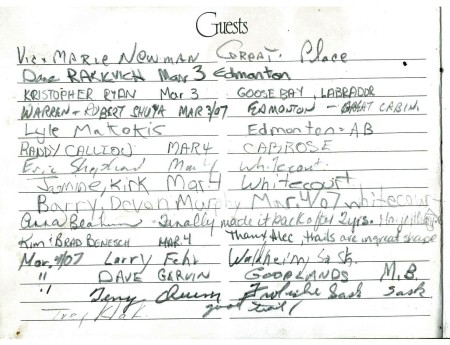 Guests
Vic & Marie Newman Great Place
Dave RAKEVICH Mar 3 Edmonton
KRISTOPHER RYAN Mar 3 GOOSE BAY, LABRADOR
WARREN + ROBERT SHUYA MAR 3/07 EDMONTON - GREAT CABIN.
Lyle Makokis Edmonton - AB
RADDY MAR 4 CAMROSE
Eric Shepherd Mar 4 Whitecourt
Jasmine, Kirk Mar 4 Whitecourt
Barry, Devon Murphy Mar. 4/07 Whitecourt
- Finally made it back after 2 yrs.
Kim & BRAD BENESCH MAR. 4 Thanx Alec, trails are in great shape
Mar. 4/07 Larry Fehr Waldheim Sask.
" DAVE GARVIN GOODLANDS M.B.
" Terry Frobisher Sask Sask
Troy good trail!